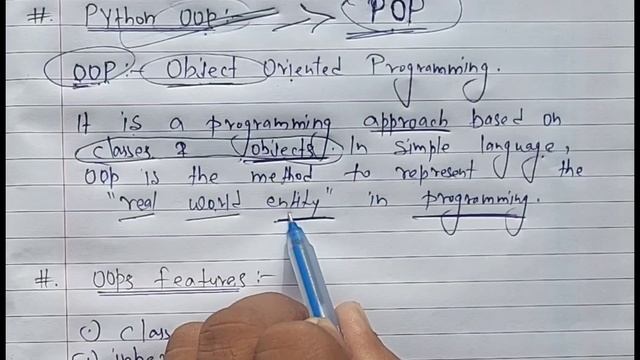 #. Python OOP:- => POP
OOP:- Object Oriented Programming.
It is a programming approach based on
classes & objects. In simple language,
OOP is the method to represent the
"real world entity" in programming.
#. OOPs features:-
(i) class